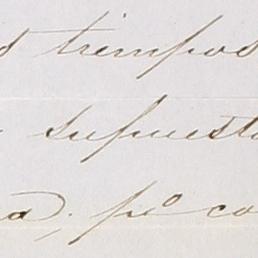 tiempos
supuesto
a; pº co